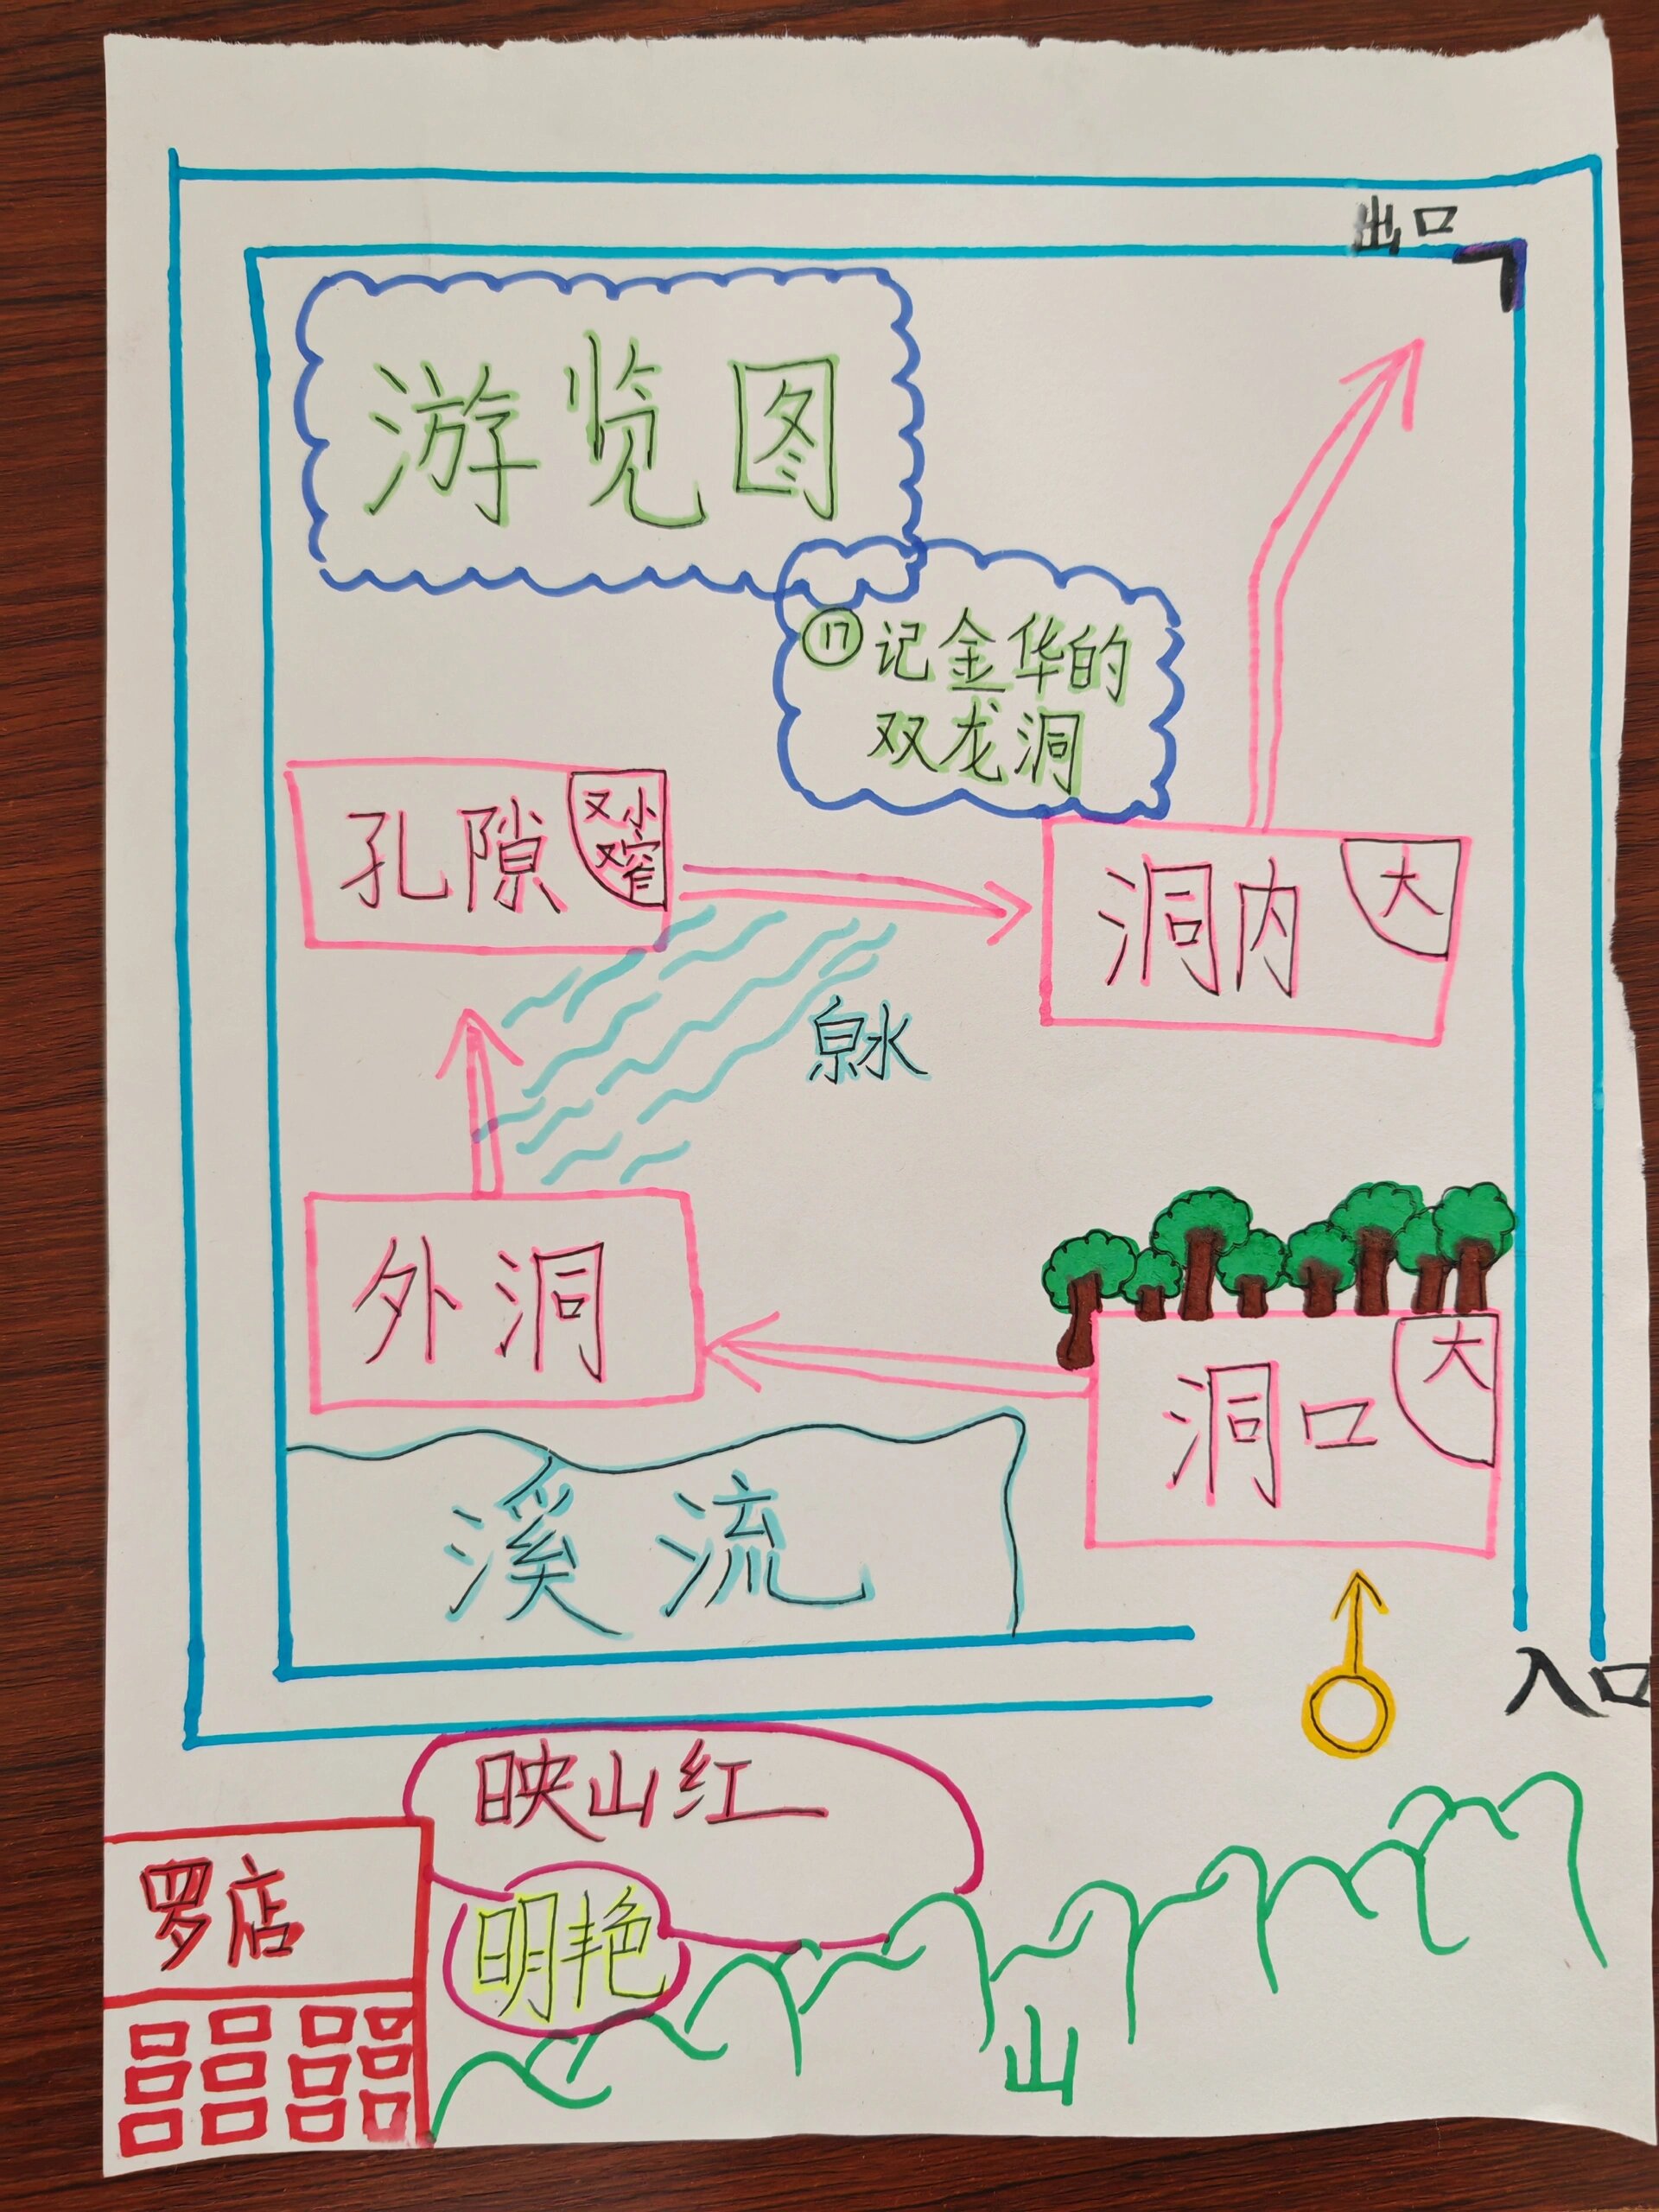 出口
游览图
⑰记金华的
双龙洞
孔隙
又小
又窄
洞内
大
泉水
外洞
洞口
大
溪流
入口
映山红
明艳
罗店
山